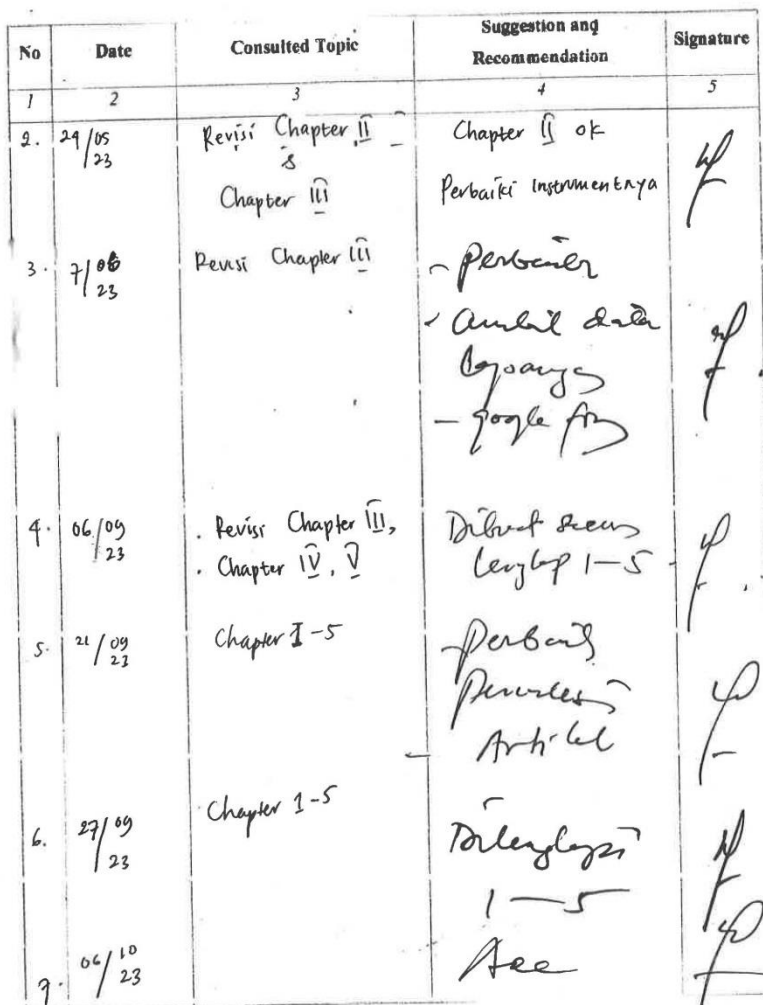 No Date Consulted Topic Suggestion and Recommendation Signature
1 2 3 4 5
2. 29/05/23 Revisi Chapter II Chapter II ok
&
Chapter III Perbaiki instrumentnya
3. 7/06/23 Revisi Chapter III - Perbaiki
- Ambil data
lapangan
- google form
4. 06/09/23 . Revisi Chapter III, Dibuat secara
. Chapter IV, V lengkap 1-5
5. 21/09/23 Chapter I-5 - Perbaiki
Penulisan
Artikel
6. 27/09/23 Chapter 1-5 Dilengkapi
1-5
7. 06/10/23 Acc